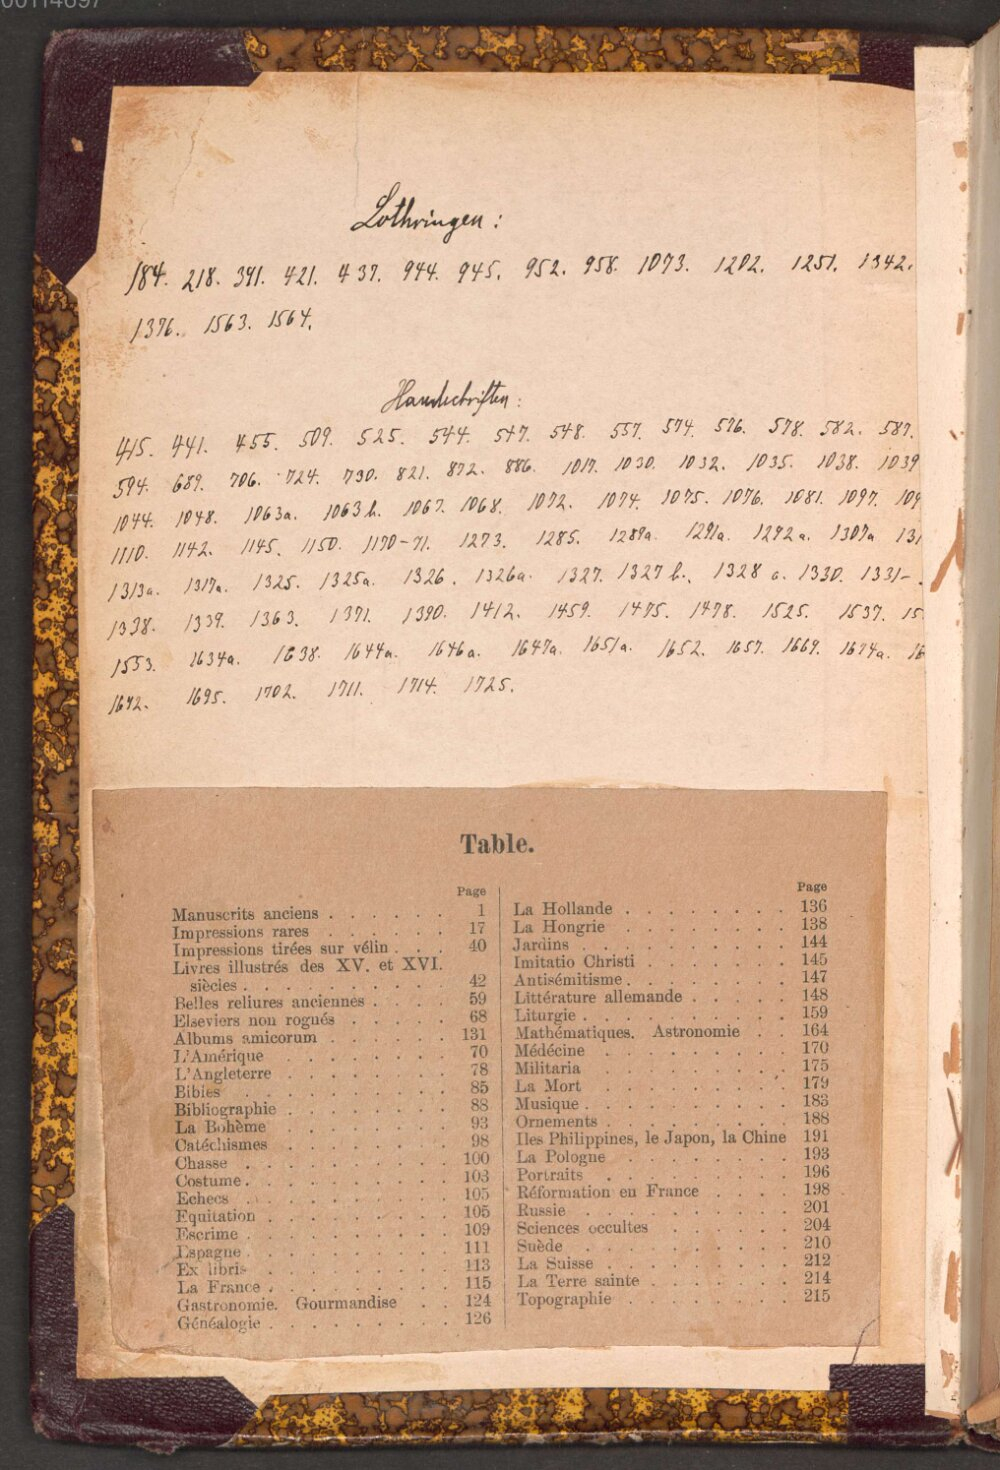 00114697
Lothringen:
184. 218. 391. 421. 437. 944. 945. 952. 958. 1073. 1202. 1251. 1342.
1376. 1563. 1564.
Handschriften:
415. 441. 455. 509. 525. 544. 547. 548. 557. 574. 576. 578. 582. 587.
594. 689. 706. 724. 730. 821. 872. 886. 1017. 1030. 1032. 1035. 1038. 1039
1044. 1048. 1063a. 1063b. 1067. 1068. 1072. 1074. 1075. 1076. 1081. 1097. 109
1110. 1142. 1145. 1150. 1170-71. 1273. 1285. 1289a. 1291a. 1292a. 1307a 131
1313a. 1317a. 1325. 1325a. 1326. 1326a. 1327. 1327b. 1328a. 1330. 1331-
1338. 1339. 1363. 1371. 1390. 1412. 1459. 1475. 1478. 1525. 1537. 15
1553. 1634a. 1638. 1644a. 1646a. 1647a. 1651a. 1652. 1657. 1669. 1674a. 16
1692. 1695. 1702. 1711. 1714. 1725.
Table.
Page
Manuscrits anciens . . . . . . 1
Impressions rares . . . . . . 17
Impressions tirées sur vélin . . . 40
Livres illustrés des XV. et XVI.
siècles . . . . . . . . . . 42
Belles reliures anciennes . . . . 59
Elseviers non rognés . . . . . 68
Albums amicorum . . . . . . 131
L'Amérique . . . . . . . 70
L'Angleterre . . . . . . . 78
Bibles . . . . . . . . . 85
Bibliographie . . . . . . . 88
La Bohème . . . . . . . 93
Catéchismes . . . . . . . 98
Chasse . . . . . . . . . 100
Costume . . . . . . . . . 103
Echecs . . . . . . . . . 105
Equitation . . . . . . . . 105
Escrime . . . . . . . . . 109
Espagne . . . . . . . . . 111
Ex libris . . . . . . . . 113
La France . . . . . . . . 115
Gastronomie. Gourmandise . . 124
Généalogie . . . . . . . . 126
Page
La Hollande . . . . . . . . 136
La Hongrie . . . . . . . . 138
Jardins . . . . . . . . . 144
Imitatio Christi . . . . . . 145
Antisémitisme . . . . . . . 147
Littérature allemande . . . . . 148
Liturgie . . . . . . . . . 159
Mathématiques. Astronomie . . 164
Médécine . . . . . . . . 170
Militaria . . . . . . . . 175
La Mort . . . . . . . . 179
Musique . . . . . . . . . 183
Ornements . . . . . . . . 188
Iles Philippines, le Japon, la Chine 191
La Pologne . . . . . . . 193
Portraits . . . . . . . . 196
Réformation en France . . . . 198
Russie . . . . . . . . . 201
Sciences occultes . . . . . . 204
Suède . . . . . . . . . 210
La Suisse . . . . . . . . 212
La Terre sainte . . . . . . 214
Topographie . . . . . . . 215